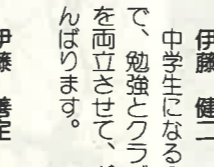 伊藤 健二
中学生になる
で、勉強とクラ
を両立させて、
んばります。
伊藤